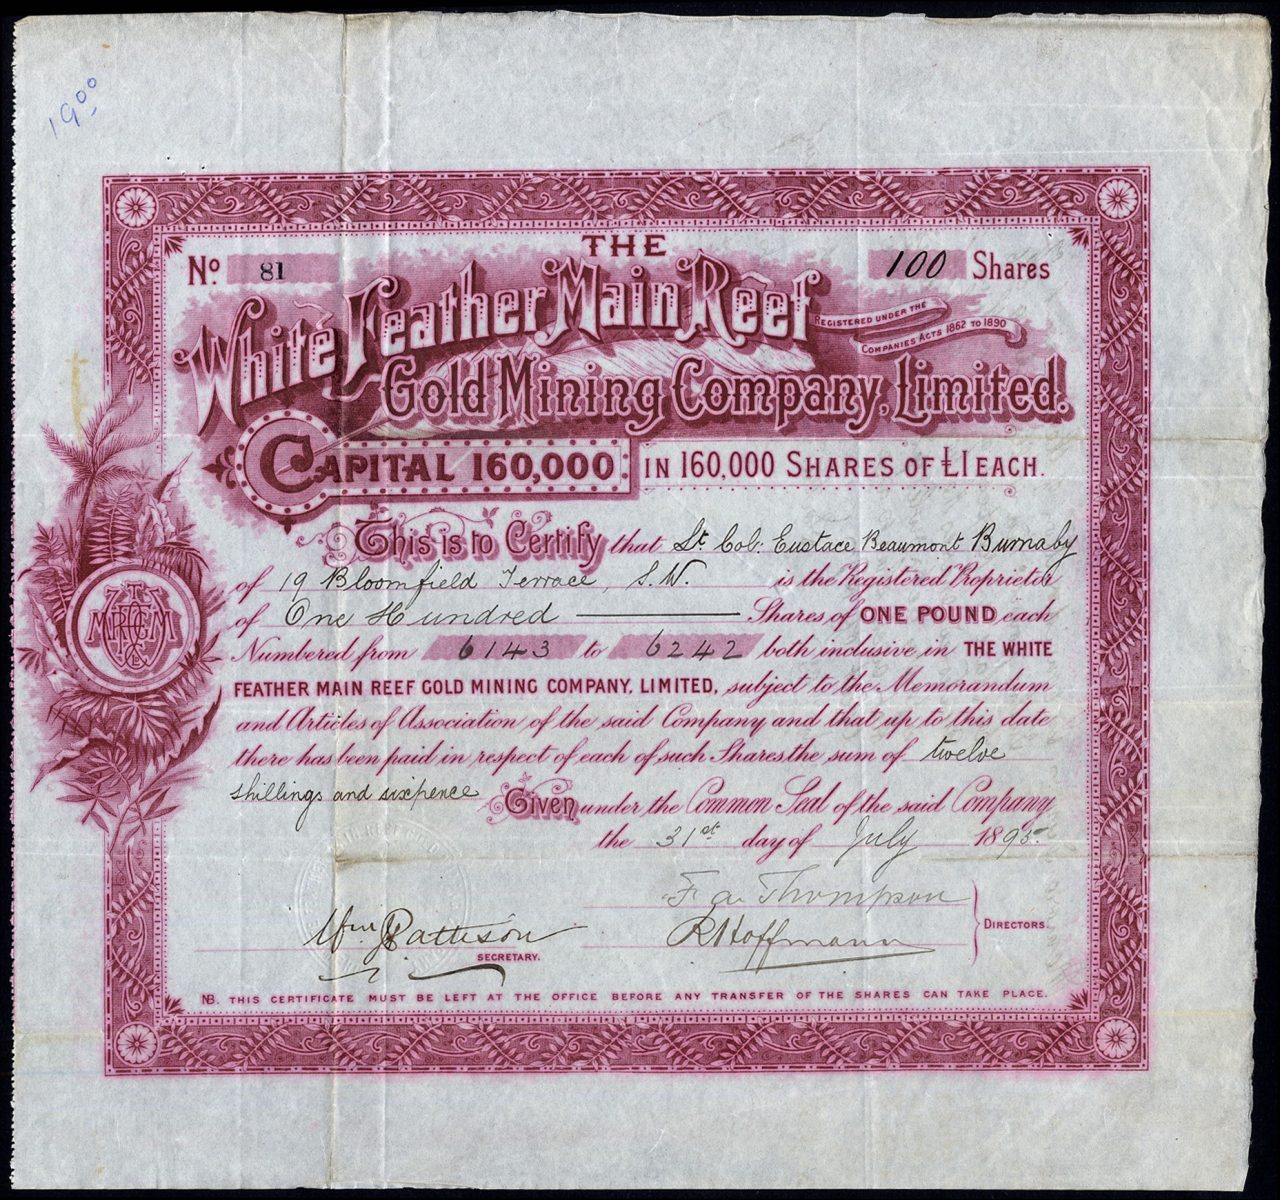 19⁰⁰
THE
No. 81
100 Shares
White Feather Main Reef
REGISTERED UNDER THE
COMPANIES ACTS 1862 TO 1890
Gold Mining Company, Limited.
CAPITAL 160,000 IN 160,000 SHARES OF £1 EACH.
This is to Certify that Lt. Col: Eustace Beaumont Burnaby
of 19 Bloomfield Terrace, S.W. is the Registered Proprietor
of One Hundred Shares of ONE POUND each
Numbered from 6143 to 6242 both inclusive, in THE WHITE
FEATHER MAIN REEF GOLD MINING COMPANY, LIMITED, subject to the Memorandum
and Articles of Association of the said Company and that up to this date
there has been paid in respect of each of such Shares the sum of twelve
shillings and sixpence Given under the Common Seal of the said Company
the 31st day of July 1895.
F. A. Thompson
Wm J Pattison R Hoffmann DIRECTORS.
SECRETARY.
NB. THIS CERTIFICATE MUST BE LEFT AT THE OFFICE BEFORE ANY TRANSFER OF THE SHARES CAN TAKE PLACE.